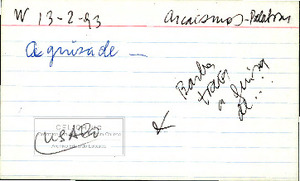 W 13-2-93 Arcaismos-Palavras
A guisa de —
Barba
traz
a guisa
de...
USADO